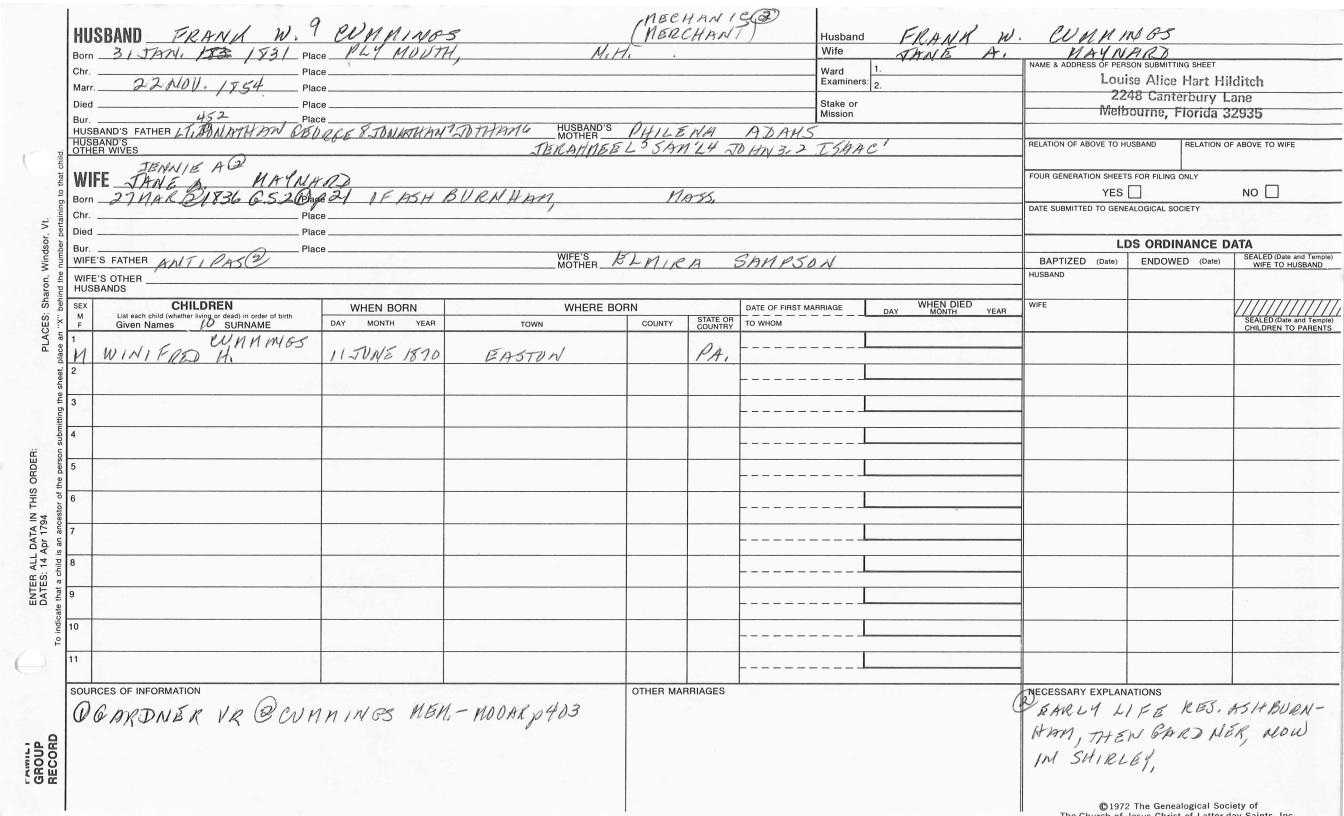 HUSBAND FRANK W. 9 CUMMINGS
MECHANIC ②
(MERCHANT)
Born 31 JAN. 1831 Place PLYMOUTH, N.H.
Chr. Place
Marr. 22 NOV. 1854 Place
Died Place
Bur. Place
452
HUSBAND'S FATHER LT. JONATHAN GEORGE 8 JONATHAN 7 JOTHAM 6
HUSBAND'S MOTHER PHILENA ADAMS
HUSBAND'S OTHER WIVES
JERAHMEEL 5 SAM'L 4 JOHN 3,2 ISAAC 1
JENNIE A ②
WIFE JANE A. MAYNARD
Born 27 MAR 1836 Place 21 IF ASHBURNHAM, MASS.
Chr. Place
Died Place
Bur. Place
WIFE'S FATHER ANTIPAS ②
WIFE'S MOTHER ELMIRA SAMPSON
WIFE'S OTHER HUSBANDS
Husband FRANK W. CUMMINGS
Wife JANE A. MAYNARD
Ward Examiners: 1.
2.
Stake or Mission
NAME & ADDRESS OF PERSON SUBMITTING SHEET
Louise Alice Hart Hilditch
2248 Canterbury Lane
Melbourne, Florida 32935
RELATION OF ABOVE TO HUSBAND RELATION OF ABOVE TO WIFE
FOUR GENERATION SHEETS FOR FILING ONLY
YES NO
DATE SUBMITTED TO GENEALOGICAL SOCIETY
LDS ORDINANCE DATA
BAPTIZED (Date) ENDOWED (Date) SEALED (Date and Temple) WIFE TO HUSBAND
HUSBAND
WIFE
SEALED (Date and Temple) CHILDREN TO PARENTS
SEX M F
CHILDREN
List each child (whether living or dead) in order of birth
Given Names 10 SURNAME
WHEN BORN
DAY MONTH YEAR
WHERE BORN
TOWN COUNTY STATE OR COUNTRY
DATE OF FIRST MARRIAGE
TO WHOM
WHEN DIED
DAY MONTH YEAR
1
M WINIFRED H. CUMMINGS 11 JUNE 1870 EASTON PA.
2
3
4
5
6
7
8
9
10
11
SOURCES OF INFORMATION
① GARDNER VR ② CUMMINGS MEM.- MOOAR p 403
OTHER MARRIAGES
② NECESSARY EXPLANATIONS
EARLY LIFE RES. ASHBURN-
HAM, THEN GARDNER, NOW
IN SHIRLEY,
©1972 The Genealogical Society of
The Church of Jesus Christ of Latter-day Saints, Inc.
PLACES: Sharon, Windsor, Vt.
ENTER ALL DATA IN THIS ORDER:
DATES: 14 Apr 1794
To indicate that a child is an ancestor of the person submitting the sheet, place an "X" behind the number pertaining to that child.
FAMILY
GROUP
RECORD